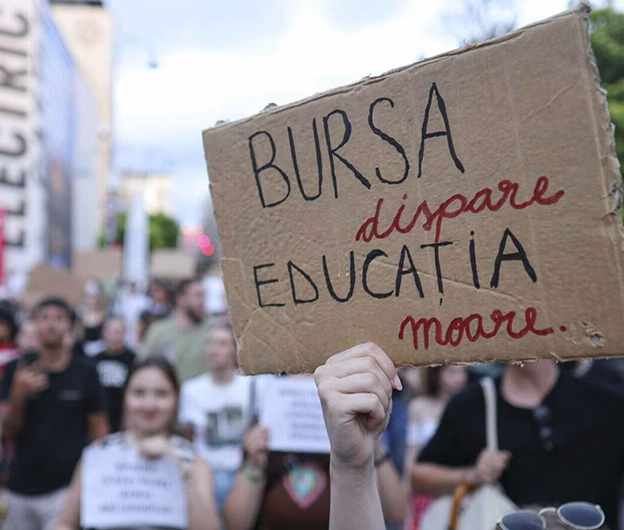 ELECTRIC
BURSA
dispare
EDUCAȚIA
moare.